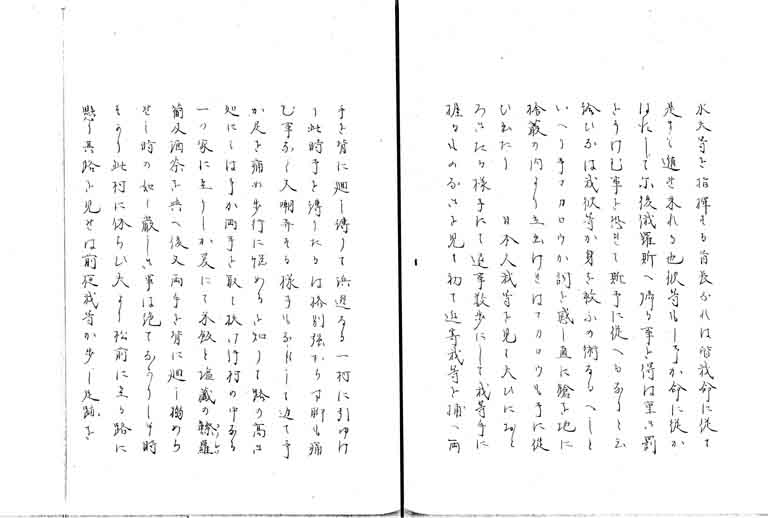 水夫等を指揮する首長なれは皆我命に従て
是まて遁せ来れる也彼等もし予か命に従か
はすして尓後俄羅斯へ帰る事を得は重い罰
をうけむ事を恐れて斯予に従へるなりと云
給ひなは我彼等か身を救ふの術なるへしと
いへり予マカロウか詞を感し直に鎗を地に
捨叢の内より立出けれはマカロウも予に従
ひ出たり 日本人我等を見て大ひにおと
ろきたる様子にて近事数歩にして我等手に
握るものなきを見て初て近寄我等を捕へ両
手を背に廻し縛りて浜辺なる一村に引ゆけ
り此時予を縛りたるは格別強からす脚も痛
む事なく又嘲弄する様子もなれして迫て予
か足を痛め歩行に悩めるを知りて路の高き
処にては予か両手を取て扶け行村の中なる
一つ家に至りしか爰にて米飯と塩蔵の鰊羅
蔔及酒茶を与へ後又両手を背に廻し搦めら
せし時の如し厳しき事は絶てなかりし半時
そこらし此村に休らひ夫より松前に至る路に
懸り其路を見せは前夜我等か歩し足跡を